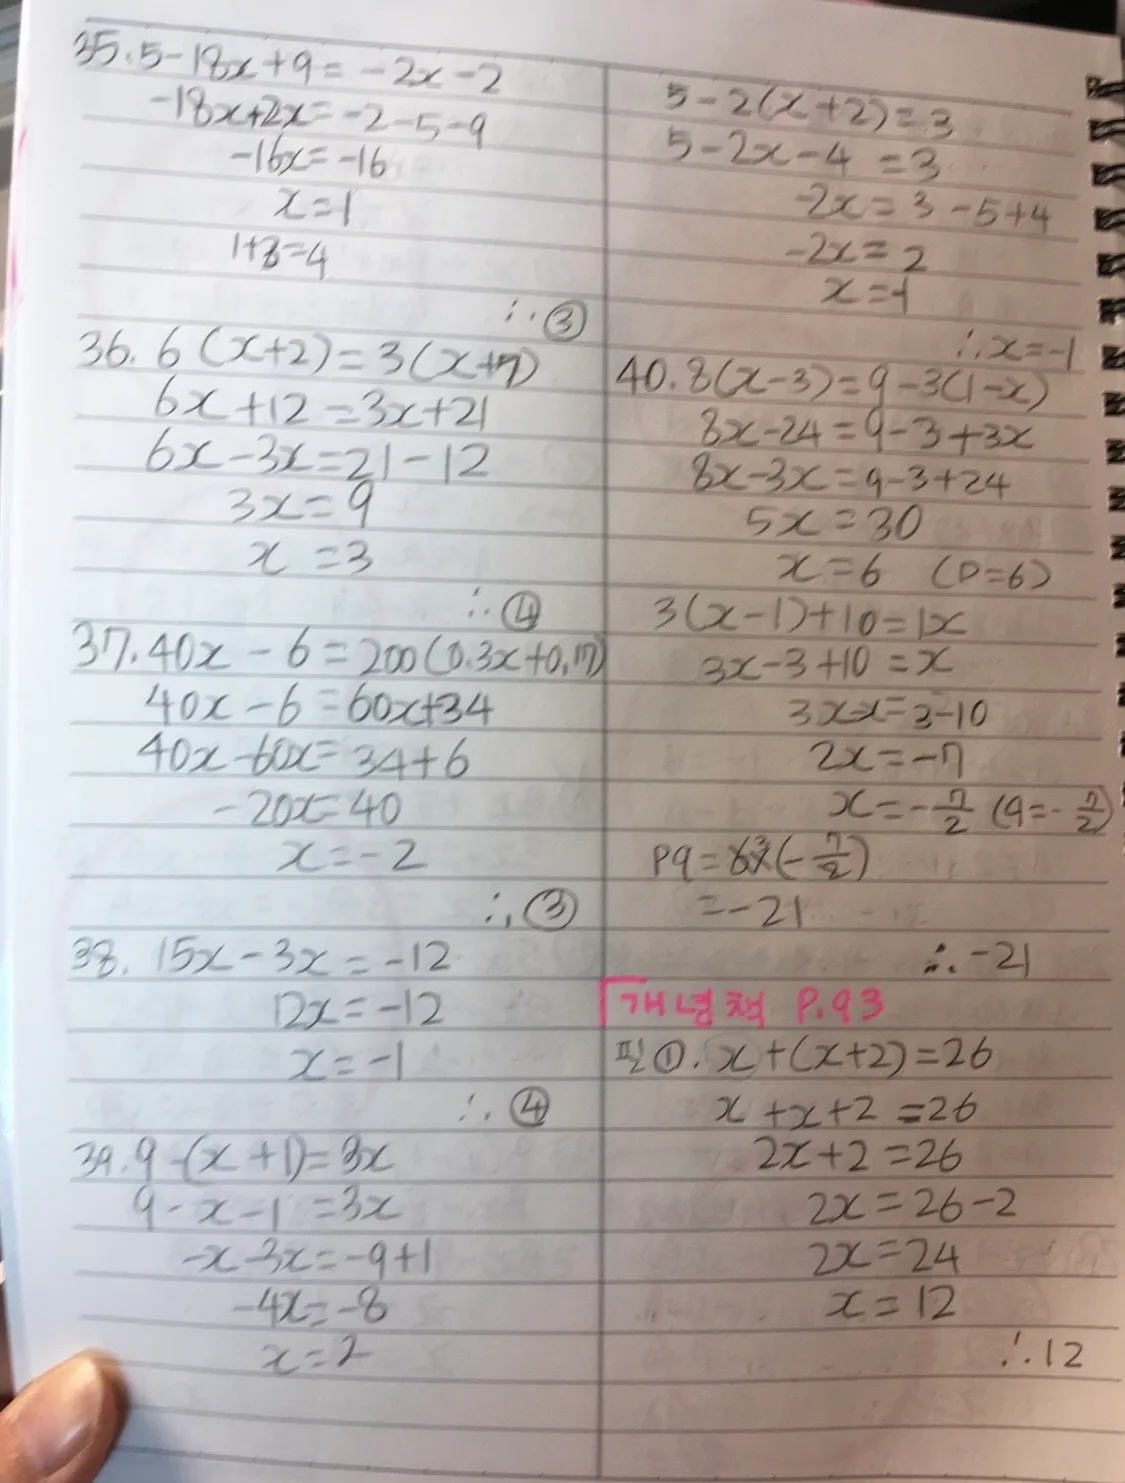 35. 5-18x+9=-2x-2
-18x+2x=-2-5-9
-16x=-16
x=1
1+3=4
∴ ③
36. 6(x+2)=3(x+7)
6x+12=3x+21
6x-3x=21-12
3x=9
x=3
∴ ④
37. 40x-6=200(0.3x+0.17)
40x-6=60x+34
40x-60x=34+6
-20x=40
x=-2
∴ ③
38. 15x-3x=-12
12x=-12
x=-1
∴ ④
39. 9-(x+1)=3x
9-x-1=3x
-x-3x=-9+1
-4x=-8
x=2
5-2(x+2)=3
5-2x-4=3
-2x=3-5+4
-2x=2
x=-1
∴ x=-1
40. 8(x-3)=9-3(1-x)
8x-24=9-3+3x
8x-3x=9-3+24
5x=30
x=6 (p=6)
3(x-1)+10=1x
3x-3+10=x
3x-x=3-10
2x=-7
x=-7/2 (q=-7/2)
pq=6×(-7/2)
=-21
∴ -21
개념책 P.93
필①. x+(x+2)=26
x+x+2=26
2x+2=26
2x=26-2
2x=24
x=12
∴ 12